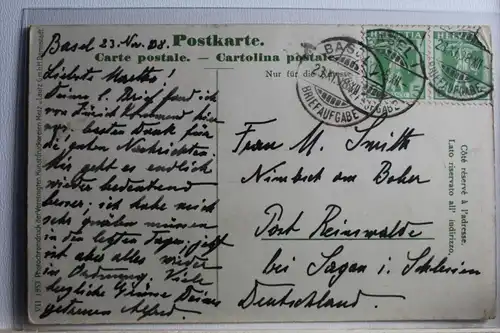 Basel 23. Nov. 08.
Postkarte.
Carte postale. — Cartolina postale.
Nur für die Adresse
Liebste Martha!
Deinen l. Brief fand ich
von Zürich kommend hier
vor, besten Dank für
die guten Nachrichten.
Mir geht es endlich
wieder bedeutend
besser; ich habe mich
sehr quälen müssen
in den letzten Tagen, jetzt
ist aber alles wieder
in Ordnung. Viele
herzliche Grüsse Deines
getreuen Alfred.
HELVETIA
BASEL 1
BRIEFAUFGABE
Frau M. Smith
Nimbsch am Bober
Post Reinswalde
bei Sagan i/ Schlesien
Deutschland.
Côté réservé à l'adresse.
Lato riservato all' indirizzo.
VII 1953 Photochromdruck der Vereinigten Kunstdruckereien Metz